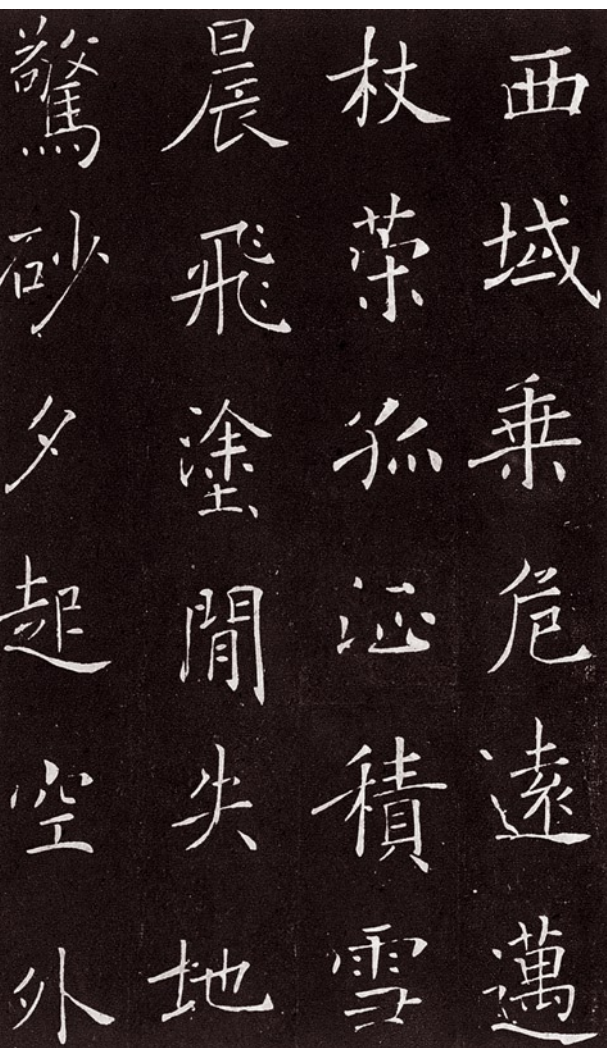 西域乘危遠邁
杖策孤征積雪
晨飛塗閒失地
驚砂夕起空外